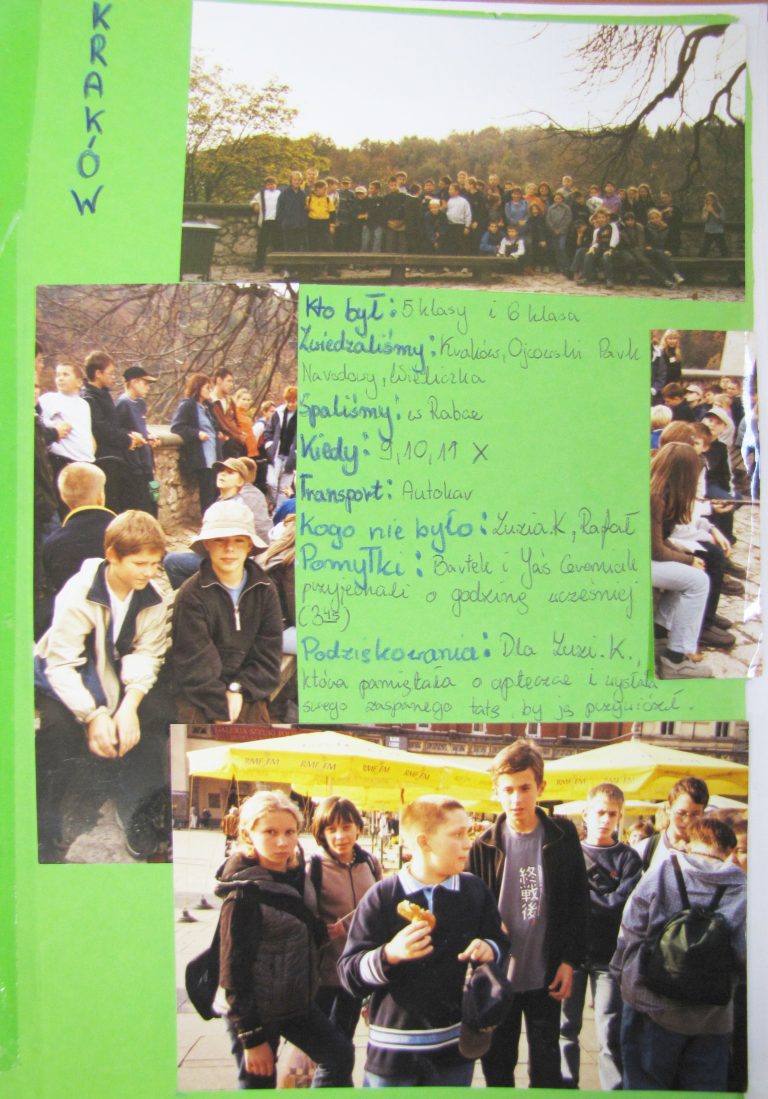 KRAKÓW
Kto był: 5 klasy i 6 klasa
Zwiedzaliśmy: Kraków, Ojcowski Park
Narodowy, Wieliczka
Spaliśmy: w Rabce
Kiedy: 9, 10, 11 X
Transport: Autokar
Kogo nie było: Zuzia.K, Rafał
Pomyłki: Bartek i Jaś
przyjechali o godzinę wcześniej
(3 45)
Podziękowania: Dla Zuzi.K.,
która pamiętała o apteczce i wysłała
swego zaspanego tatę, by ją przywiózł.
RMF FM
RMF FM
RMF FM
終戦後